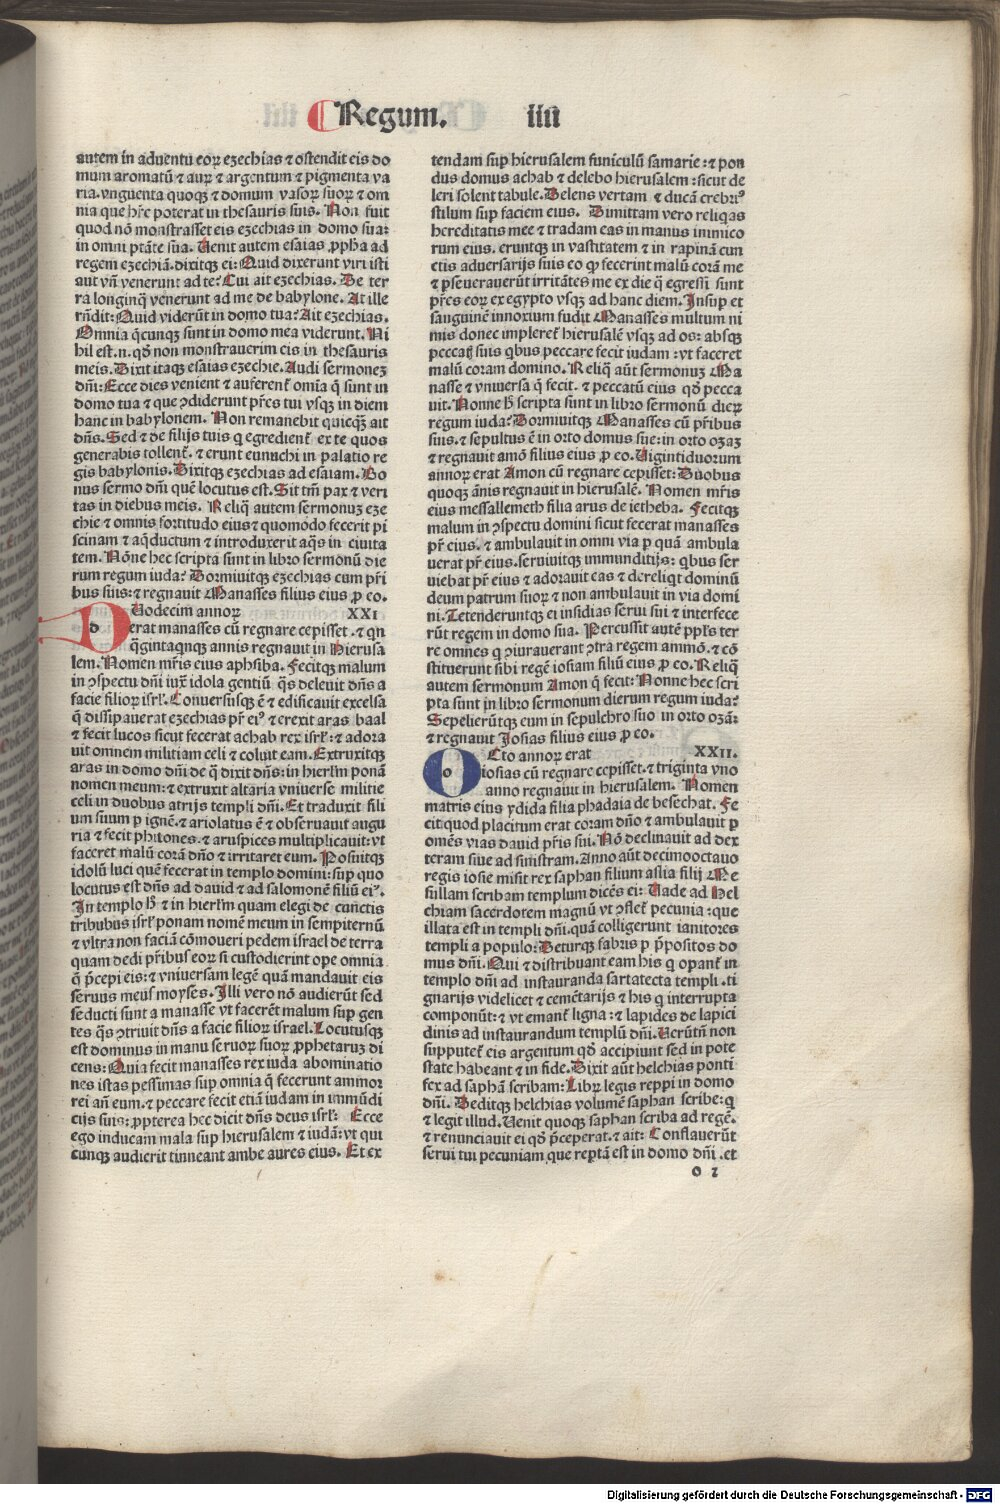 Regum. iiii
autem in adventu eoꝝ ezechias ⁊ ostendit eis do
mum aromatū ⁊ auꝝ ⁊ argentum ⁊ pigmenta va
ria. vnguenta quoqꝫ ⁊ domum vasoꝝ suoꝝ ⁊ om
nia que hr̄e poterat in thesauris suis. Non fuit
quod nō monstrasset eis ezechias in domo sua:
in omni ptāte sua. Uenit autem esaias ꝓph̄a ad
regem ezechiā. dixitqꝫ ei: Quid dixerunt viri isti
aut vn̄ venerunt ad te? Cui ait ezechias. De ter
ra longinq̄ venerunt ad me de babylone. At ille
rn̄dit: Quid viderūt in domo tua? Ait ezechias.
Omnia q̄cunqꝫ sunt in domo mea viderunt. Ni
hil est .n. qd̄ non monstrauerim eis in thesauris
meis. Dixit itaqꝫ esaias ezechie. Audi sermonez
dn̄i: Ecce dies venient ⁊ auferent̄ om̄ia q̄ sunt in
domo tua ⁊ que ꝯdiderunt pr̄es tui vsqꝫ in diem
hanc in babylonem. Non remanebit quicq̄ꝫ ait
dn̄s. Sed ⁊ de filijs tuis q̄ egredient̄ ex te quos
generabis tollent̄. ⁊ erunt eunuchi in palatio re
gis babylonis. Dixitqꝫ ezechias ad esaiam. Bo
nus sermo dn̄i quē locutus est. Sit tm̄ pax ⁊ veri
tas in diebus meis. Reliq̄ autem sermonuꝫ eze
chie ⁊ omnis fortitudo eius ⁊ quomodo fecerit pi
scinam ⁊ aq̄ductum ⁊ introduxerit aq̄s in ciuita
tem. Nōne hec scripta sunt in libro sermonū die
rum regum iuda? Dormiuitqꝫ ezechias cum pr̄i
bus suis: ⁊ regnauit Manasses filius eius ꝓ eo.
DUodecim annoꝝ XXI
d erat manasses cū regnare cepisset. ⁊ qn
q̄gintaqnqꝫ annis regnauit in Hierusa
lem. Nomen mr̄is eius aphsiba. Fecitqꝫ malum
in ꝯspectu dn̄i iux̄ idola gentiū q̄s deleuit dn̄s a
facie filioꝝ isrl̄. Conuersusqꝫ ē ⁊ edificauit excelsa
q̄ dissipauerat ezechias pr̄ eiꝰ ⁊ erexit aras baal
⁊ fecit lucos sicut fecerat achab rex isrl̄: ⁊ adora
uit omnem militiam celi ⁊ coluit eam. Extruxitqꝫ
aras in domo dn̄i de q̄ dixit dn̄s: in hierlm̄ ponā
nomen meum: ⁊ extruxit altaria vniuerse militie
celi in duobus atrijs templi dn̄i. Et traduxit fili
um suum ꝑ ignē. ⁊ ariolatus ē ⁊ obseruauit augu
ria ⁊ fecit phitones. ⁊ aruspices multiplicauit: vt
faceret malū corā dn̄o ⁊ irritaret eum. Posuitqꝫ
idolū luci quē fecerat in templo domini: suꝑ quo
locutus est dn̄s ad dauid ⁊ ad salomonē filiū eiꝰ.
In templo h̄ ⁊ in hierlm̄ quam elegi de cunctis
tribubus isrl̄ ponam nomē meum in sempiternū
⁊ vltra non faciā cōmoueri pedem israel de terra
quam dedi pr̄ibus eoꝝ si custodierint ope omnia
q̄ p̄cepi eis: ⁊ vniuersam legē quā mandauit eis
seruus meus moyses. Illi vero nō audierūt sed
seducti sunt a manasse vt facerēt malum suꝑ gen
tes q̄s ꝯtriuit dn̄s a facie filioꝝ israel. Locutusqꝫ
est dominus in manu seruoꝝ suoꝝ ꝓphetaruꝫ di
cens: Quia fecit manasses rex iuda abominatio
nes istas pessimas suꝑ omnia q̄ fecerunt ammor
rei an̄ eum. ⁊ peccare fecit etiā iudam in immūdi
cijs suis: ꝓpterea hec dicit dn̄s deus isrl̄: Ecce
ego inducam mala suꝑ hierusalem ⁊ iudā: vt qui
cunqꝫ audierit tinneant ambe aures eius. Et ex
tendam suꝑ hierusalem funiculū samarie: ⁊ pon
dus domus achab ⁊ delebo hierusalem: sicut de
leri solent tabule. Delens vertam ⁊ ducā crebriꝰ
stilum suꝑ faciem eius. Dimittam vero reliq̄as
hereditatis mee ⁊ tradam eas in manus inimico
rum eius. eruntqꝫ in vastitatem ⁊ in rapinā cun
ctis aduersarijs suis eo ꝙ fecerint malū corā me
⁊ ꝑseuerauerūt irritātes me ex die q̄ egressi sunt
pr̄es eoꝝ ex egypto vsqꝫ ad hanc diem. Insuꝑ et
sanguinē innoxium fudit Manasses multum ni
mis donec impleret̄ hierusalē vsqꝫ ad os: absqꝫ
peccat̄ suis qbus peccare fecit iudam: vt faceret
malū coram domino. Reliq̄ aūt sermonuꝫ Ma
nasse ⁊ vniuersa q̄ fecit. ⁊ peccatū eius qd̄ pecca
uit. Nonne h̄ scripta sunt in libro sermonū dieꝝ
regum iuda? Dormiuitqꝫ Manasses cū pr̄ibus
suis. ⁊ sepultus ē in orto domus sue: in orto ozaꝫ
⁊ regnauit amō filius eius ꝓ eo. Uigintiduorum
annoꝝ erat Amon cū regnare cepisset: Duobus
quoqꝫ ānis regnauit in hierusalē. Nomen mr̄is
eius messallemeth filia arus de ietheba. Fecitqꝫ
malum in ꝯspectu domini sicut fecerat manasses
pr̄ eius. ⁊ ambulauit in omni via ꝑ quā ambula
uerat pr̄ eius. seruiuitqꝫ immunditijs: qbus ser
uiebat pr̄ eius ⁊ adorauit eas ⁊ dereliqt dominū
deum patrum suoꝝ ⁊ non ambulauit in via domi
ni. Tetenderuntqꝫ ei insidias serui sui ⁊ interfece
rūt regem in domo sua. Percussit autē ppl̄s ter
re omnes q̄ ꝯiurauerant ꝯtra regem ammō. ⁊ cō
stituerunt sibi regē iosiam filiū eius ꝓ eo. Reliq̄
autem sermonum Amon q̄ fecit: Nonne hec scri
pta sunt in libro sermonum dierum regum iuda?
Sepelierūtqꝫ eum in sepulchro suo in orto ozā:
⁊ regnauit Josias filius eius ꝓ eo.
OCto annoꝝ erat XXII.
o iosias cū regnare cepisset. ⁊ triginta vno
anno regnauit in hierusalem. Nomen
matris eius ydida filia phadaia de besechat. Fe
cit quod placitum erat coram dn̄o ⁊ ambulauit ꝑ
omēs vias dauid pr̄is sui. Nō declinauit ad dex
teram siue ad sinistram. Anno aūt decimooctauo
regis iosie misit rex saphan filium aslia filij Me
sullam scribam templum dicēs ei: Uade ad Hel
chiam sacerdotem magnū vt ꝯflet̄ pecunia: que
illata est in templū dn̄i. quā colligerunt ianitores
templi a populo: Deturqꝫ fabris ꝑ p̄positos do
mus dn̄i. Qui ⁊ distribuant eam his q̄ opant̄ in
templo dn̄i ad instauranda sartatecta templi. ti
gnarijs videlicet ⁊ cemētarijs ⁊ his q̄ interrupta
componūt: ⁊ vt emant̄ ligna: ⁊ lapides de lapici
dinis ad instaurandum templū dn̄i. Uerūtn̄ non
supputet̄ eis argentum qd̄ accipiunt sed in pote
state habeant ⁊ in fide. Dixit aūt helchias ponti
fex ad saphā scribam: Libꝝ legis reppi in domo
dn̄i. Deditqꝫ helchias volumē saphan scribe: q̄
⁊ legit illud. Uenit quoqꝫ saphan scriba ad regē.
⁊ renunciauit ei qd̄ p̄ceperat. ⁊ ait: Conflauerūt
serui tui pecuniam que reptā est in domo dn̄i. et
o 2
Digitalisierung gefördert durch die Deutsche Forschungsgemeinschaft - DFG